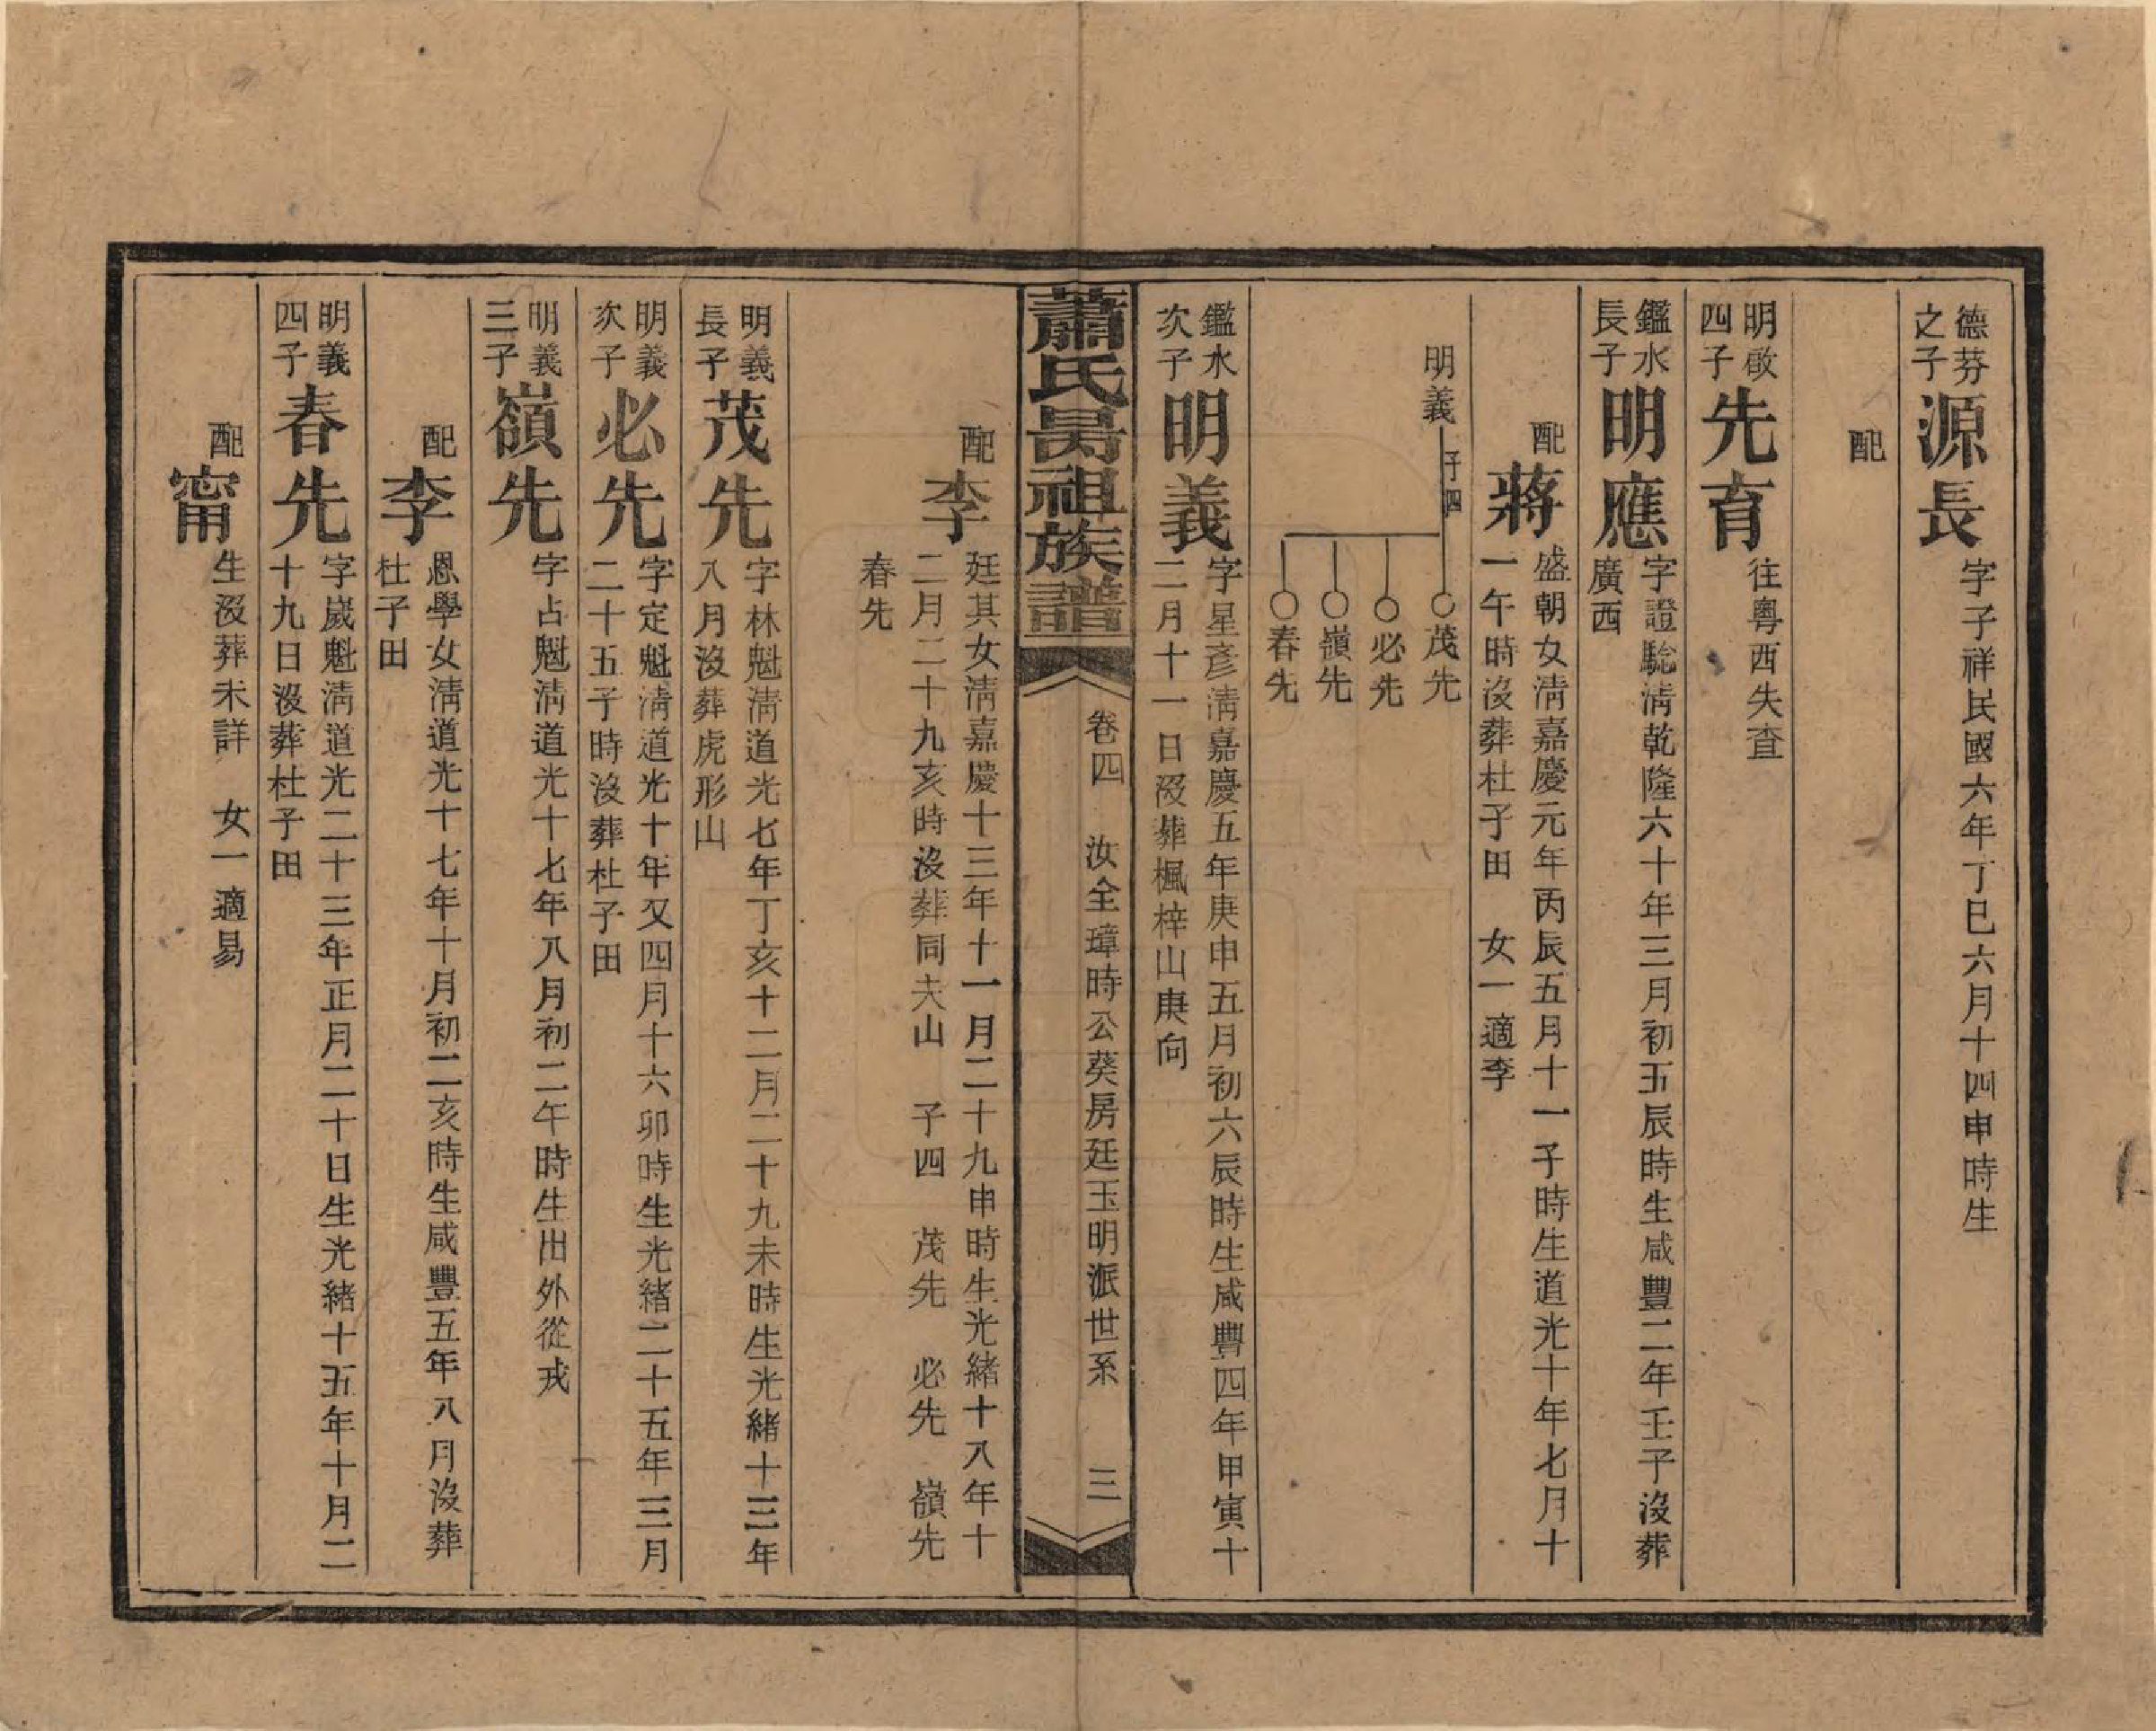 德芬之子 源長 字子祥民國六年丁巳六月十四申時生
配
明敬四子 先育 往粵西失查
鑑水長子 明應 字證騐淸乾隆六十年三月初五辰時生咸豐二年壬子沒葬
廣西
配 蔣 盛朝女淸嘉慶元年丙辰五月十一子時生道光十年七月十
一午時沒葬杜子田 女一適李
明義 子四
茂先
必先
嶺先
春先
鑑水次子 明義 字星彥淸嘉慶五年庚申五月初六辰時生咸豐四年甲寅十
二月十一日沒葬楓梓山庚向
蕭氏昺祖族譜 卷四 汝全璋時公葵房廷玉明派世系 三
配 李 廷其女淸嘉慶十三年十一月二十九申時生光緒十八年十
二月二十九亥時沒葬同夫山 子四 茂先 必先 嶺先
春先
明義長子 茂先 字林魁淸道光七年丁亥十二月二十九未時生光緒十三年
八月沒葬虎形山
明義次子 必先 字定魁淸道光十年又四月十六卯時生光緒二十五年三月
二十五子時沒葬杜子田
明義三子 嶺先 字占魁淸道光十七年八月初二午時生出外從戎
配 李 恩學女淸道光十七年十月初二亥時生咸豐五年八月沒葬
杜子田
明義四子 春先 字嵗魁淸道光二十三年正月二十日生光緒十五年十月二
十九日沒葬杜子田
配 甯 生沒葬未詳 女一適易